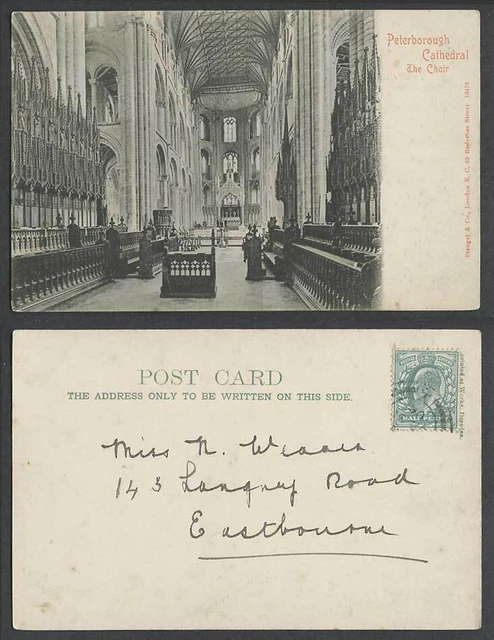 Peterborough
Cathedral
The Choir
Stengel & Co., London E. C. 39 Redcross Street 16478
POST CARD
THE ADDRESS ONLY TO BE WRITTEN ON THIS SIDE.
HALFPENNY
Miss N. Weaver
143 Langney Road
Eastbourne